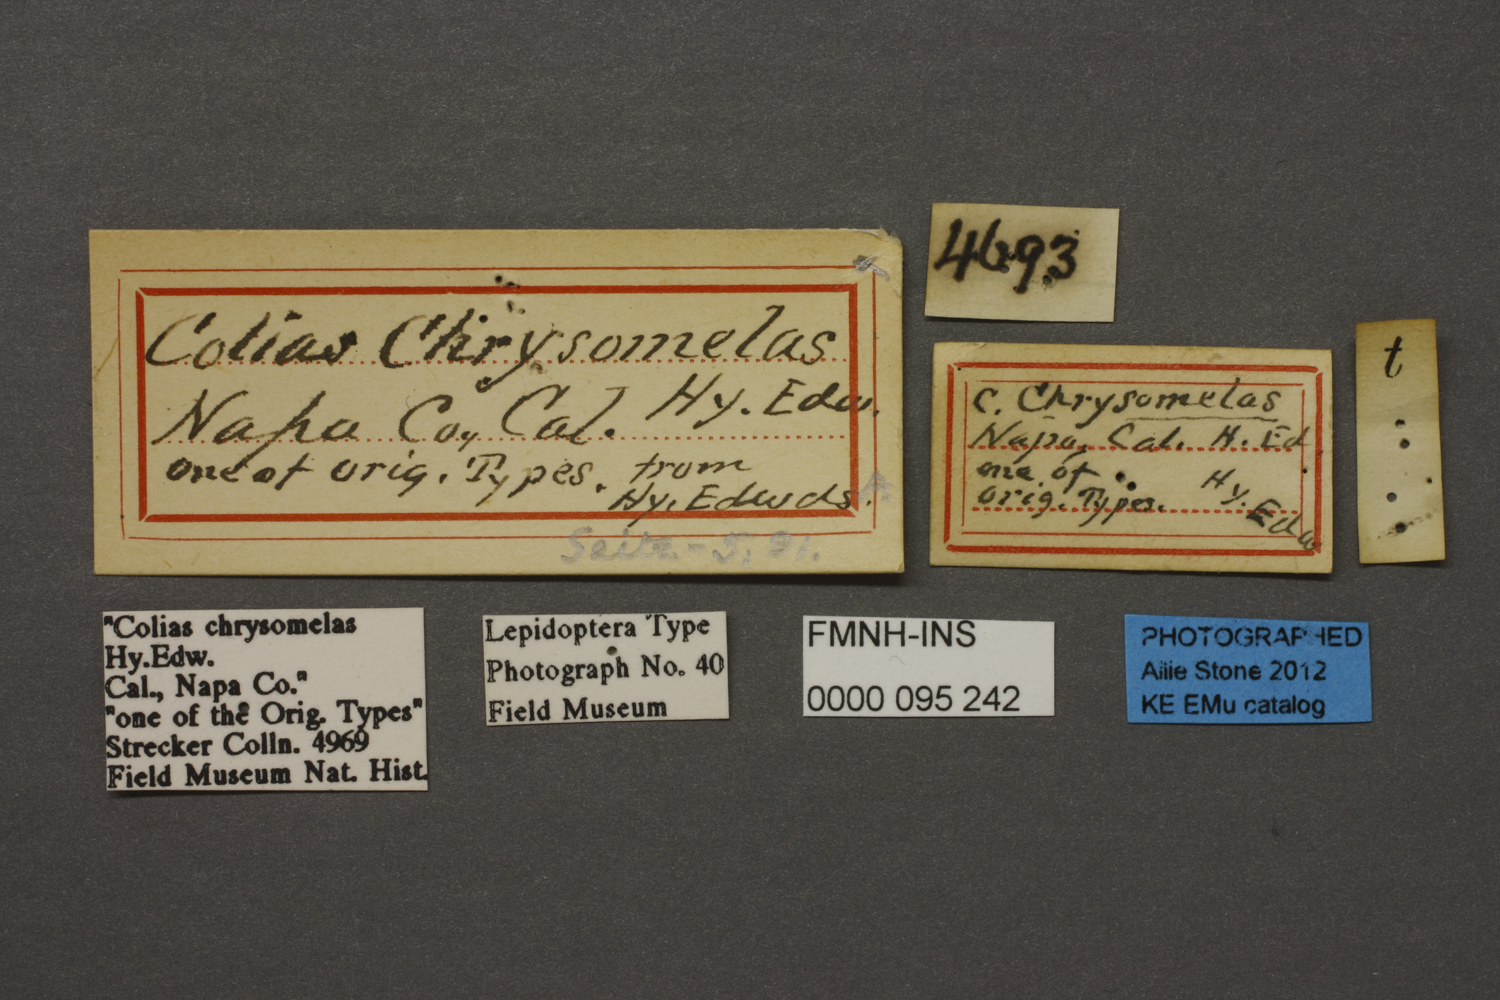 Colias Chrysomelas
Hy. Edw.
Napa Co., Cal.
one of orig. Types. from
Hy. Edwds.
Seitz - 5, 91.
4693
C. Chrysomelas
Napa, Cal. H. Ed
one of
orig. Types.
Hy. Edw
t
"Colias chrysomelas
Hy.Edw.
Cal., Napa Co."
"one of the Orig. Types"
Strecker Colln. 4969
Field Museum Nat. Hist.
Lepidoptera Type
Photograph No. 40
Field Museum
FMNH-INS
0000 095 242
PHOTOGRAPHED
Ailie Stone 2012
KE EMu catalog